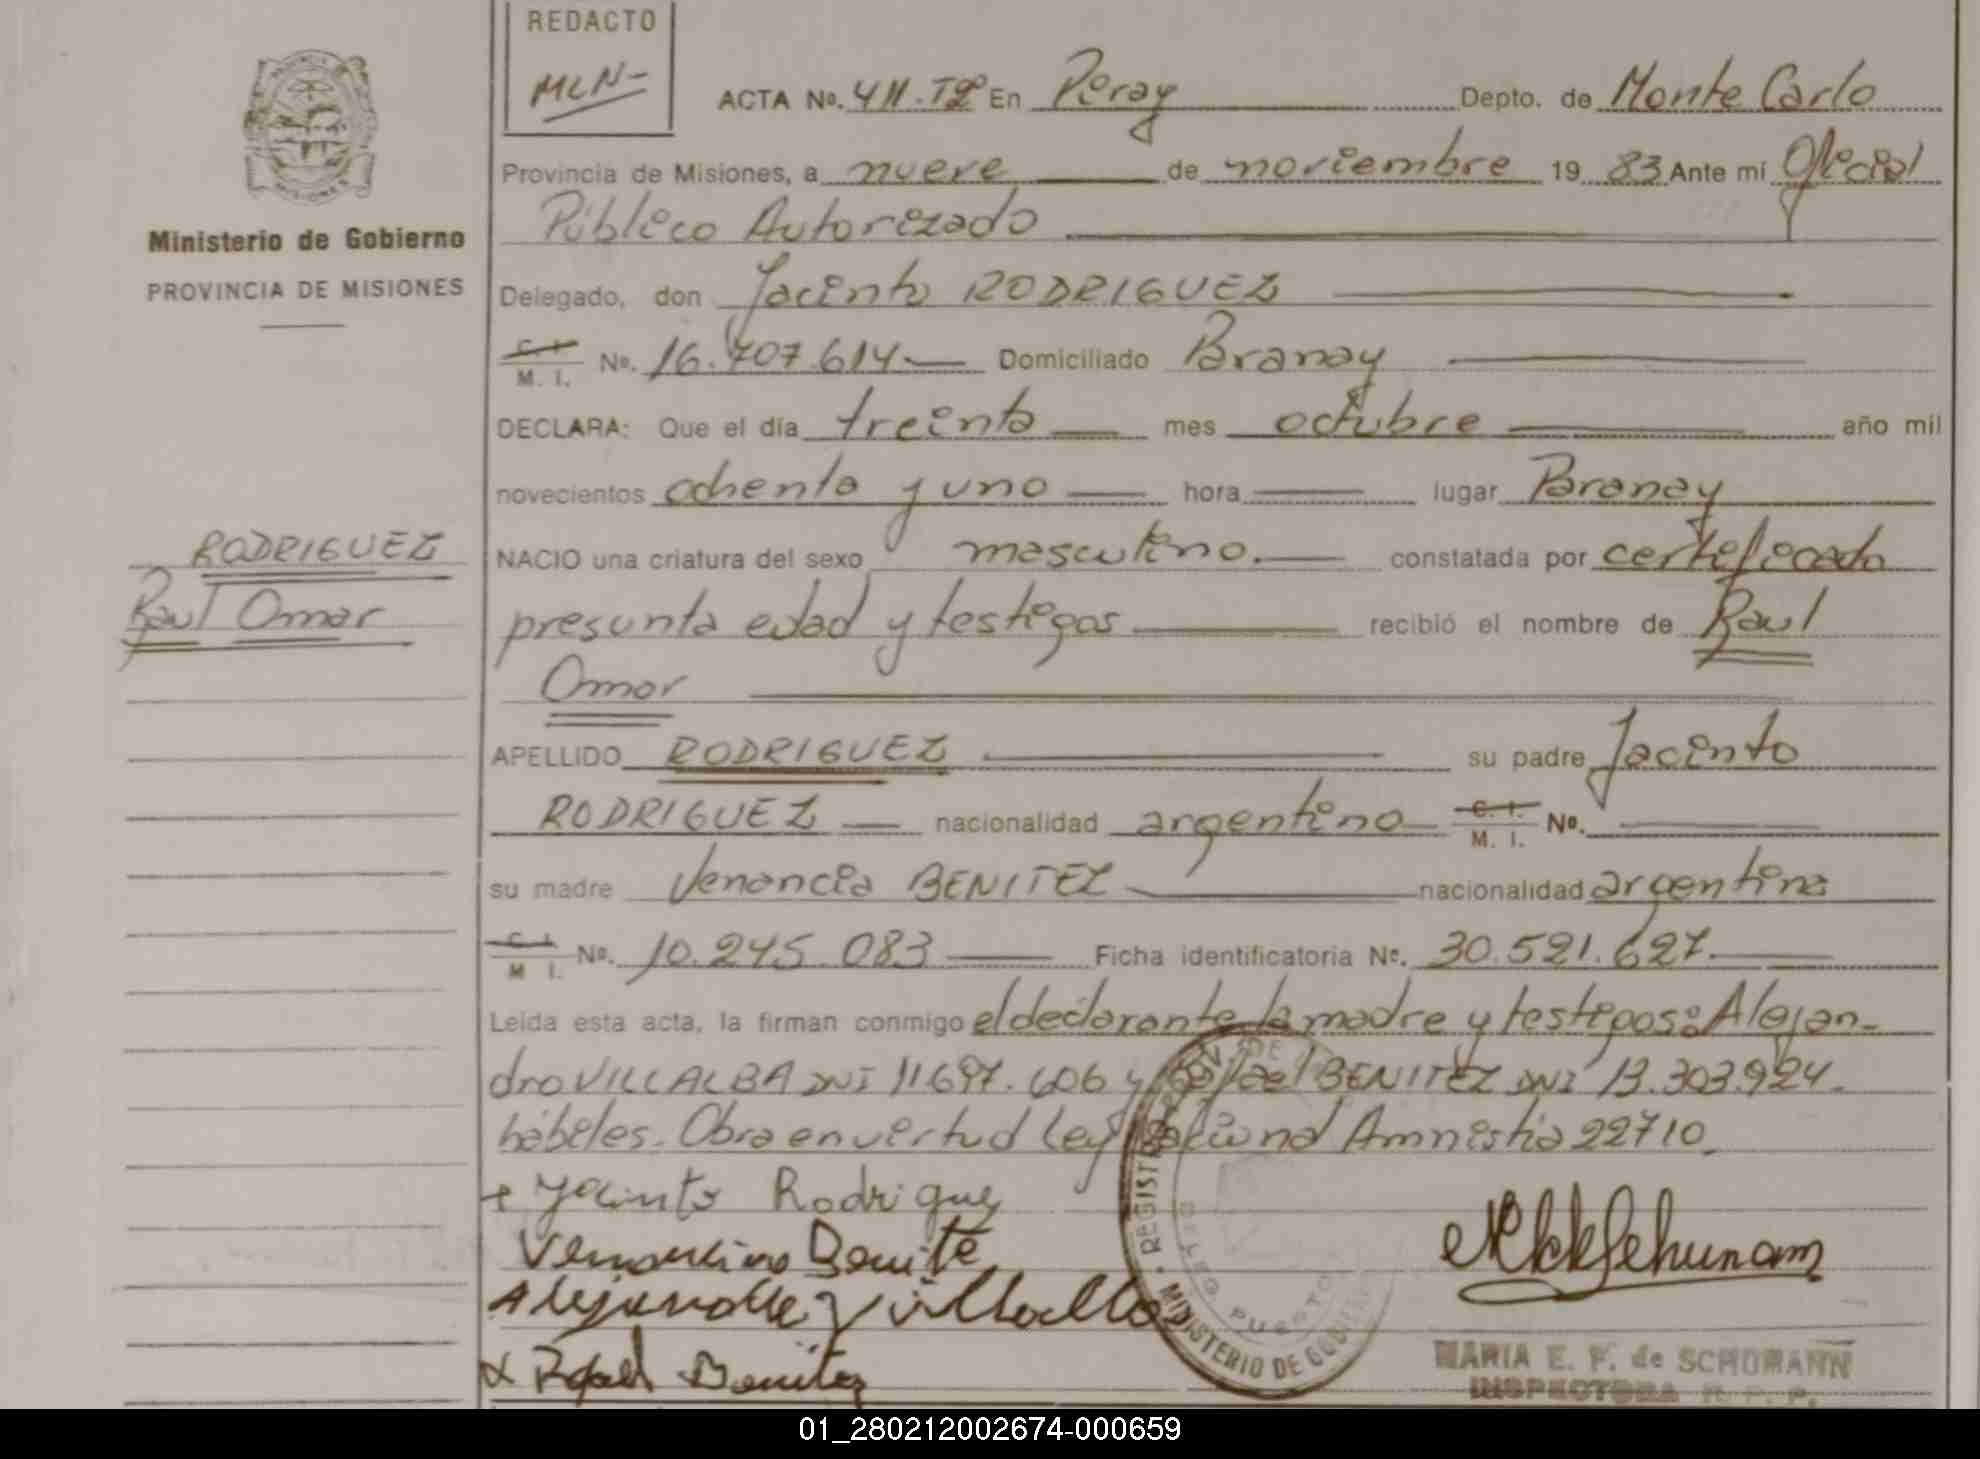 REDACTO
MLN-
ACTA No. 411.T2º En Piray Depto. de Monte Carlo
Provincia de Misiones, a nueve de noviembre 19 83 Ante mí Oficial
Público Autorizado
Ministerio de Gobierno
PROVINCIA DE MISIONES
Delegado, don Jacinto RODRIGUEZ
C. I.
M. I. No. 16.707.614 Domiciliado Paranay
DECLARA: Que el día treinta mes octubre año mil
novecientos ochenta y uno hora lugar Paranay
RODRIGUEZ
Raul Omar
NACIO una criatura del sexo masculino. constatada por certificado
presunta edad y testigos recibió el nombre de Raul
Omar
APELLIDO RODRIGUEZ su padre Jacinto
RODRIGUEZ nacionalidad argentino C. I.
M. I. No.
su madre Venancia BENITEZ nacionalidad argentina
C. I.
M. I. No. 10.245.083 Ficha identificatoria No. 30.521.627.
Leída esta acta, la firman conmigo el declarante la madre y testigos: Alejan-
dro VILLALBA DNI 11.697.606 y Rafael BENITEZ DNI 13.303.924.
hábiles. Obra en virtud Ley Nacional Amnistia 22710.
Jacinto Rodriguez
Benite
Villalba
Rafael Benitez
REGISTRO
DELEG. PUERTO
MINISTERIO DE GOBIERNO
MARIA E. F. de SCHUMANN
INSPECTORA R. P. P.
01_280212002674-000659